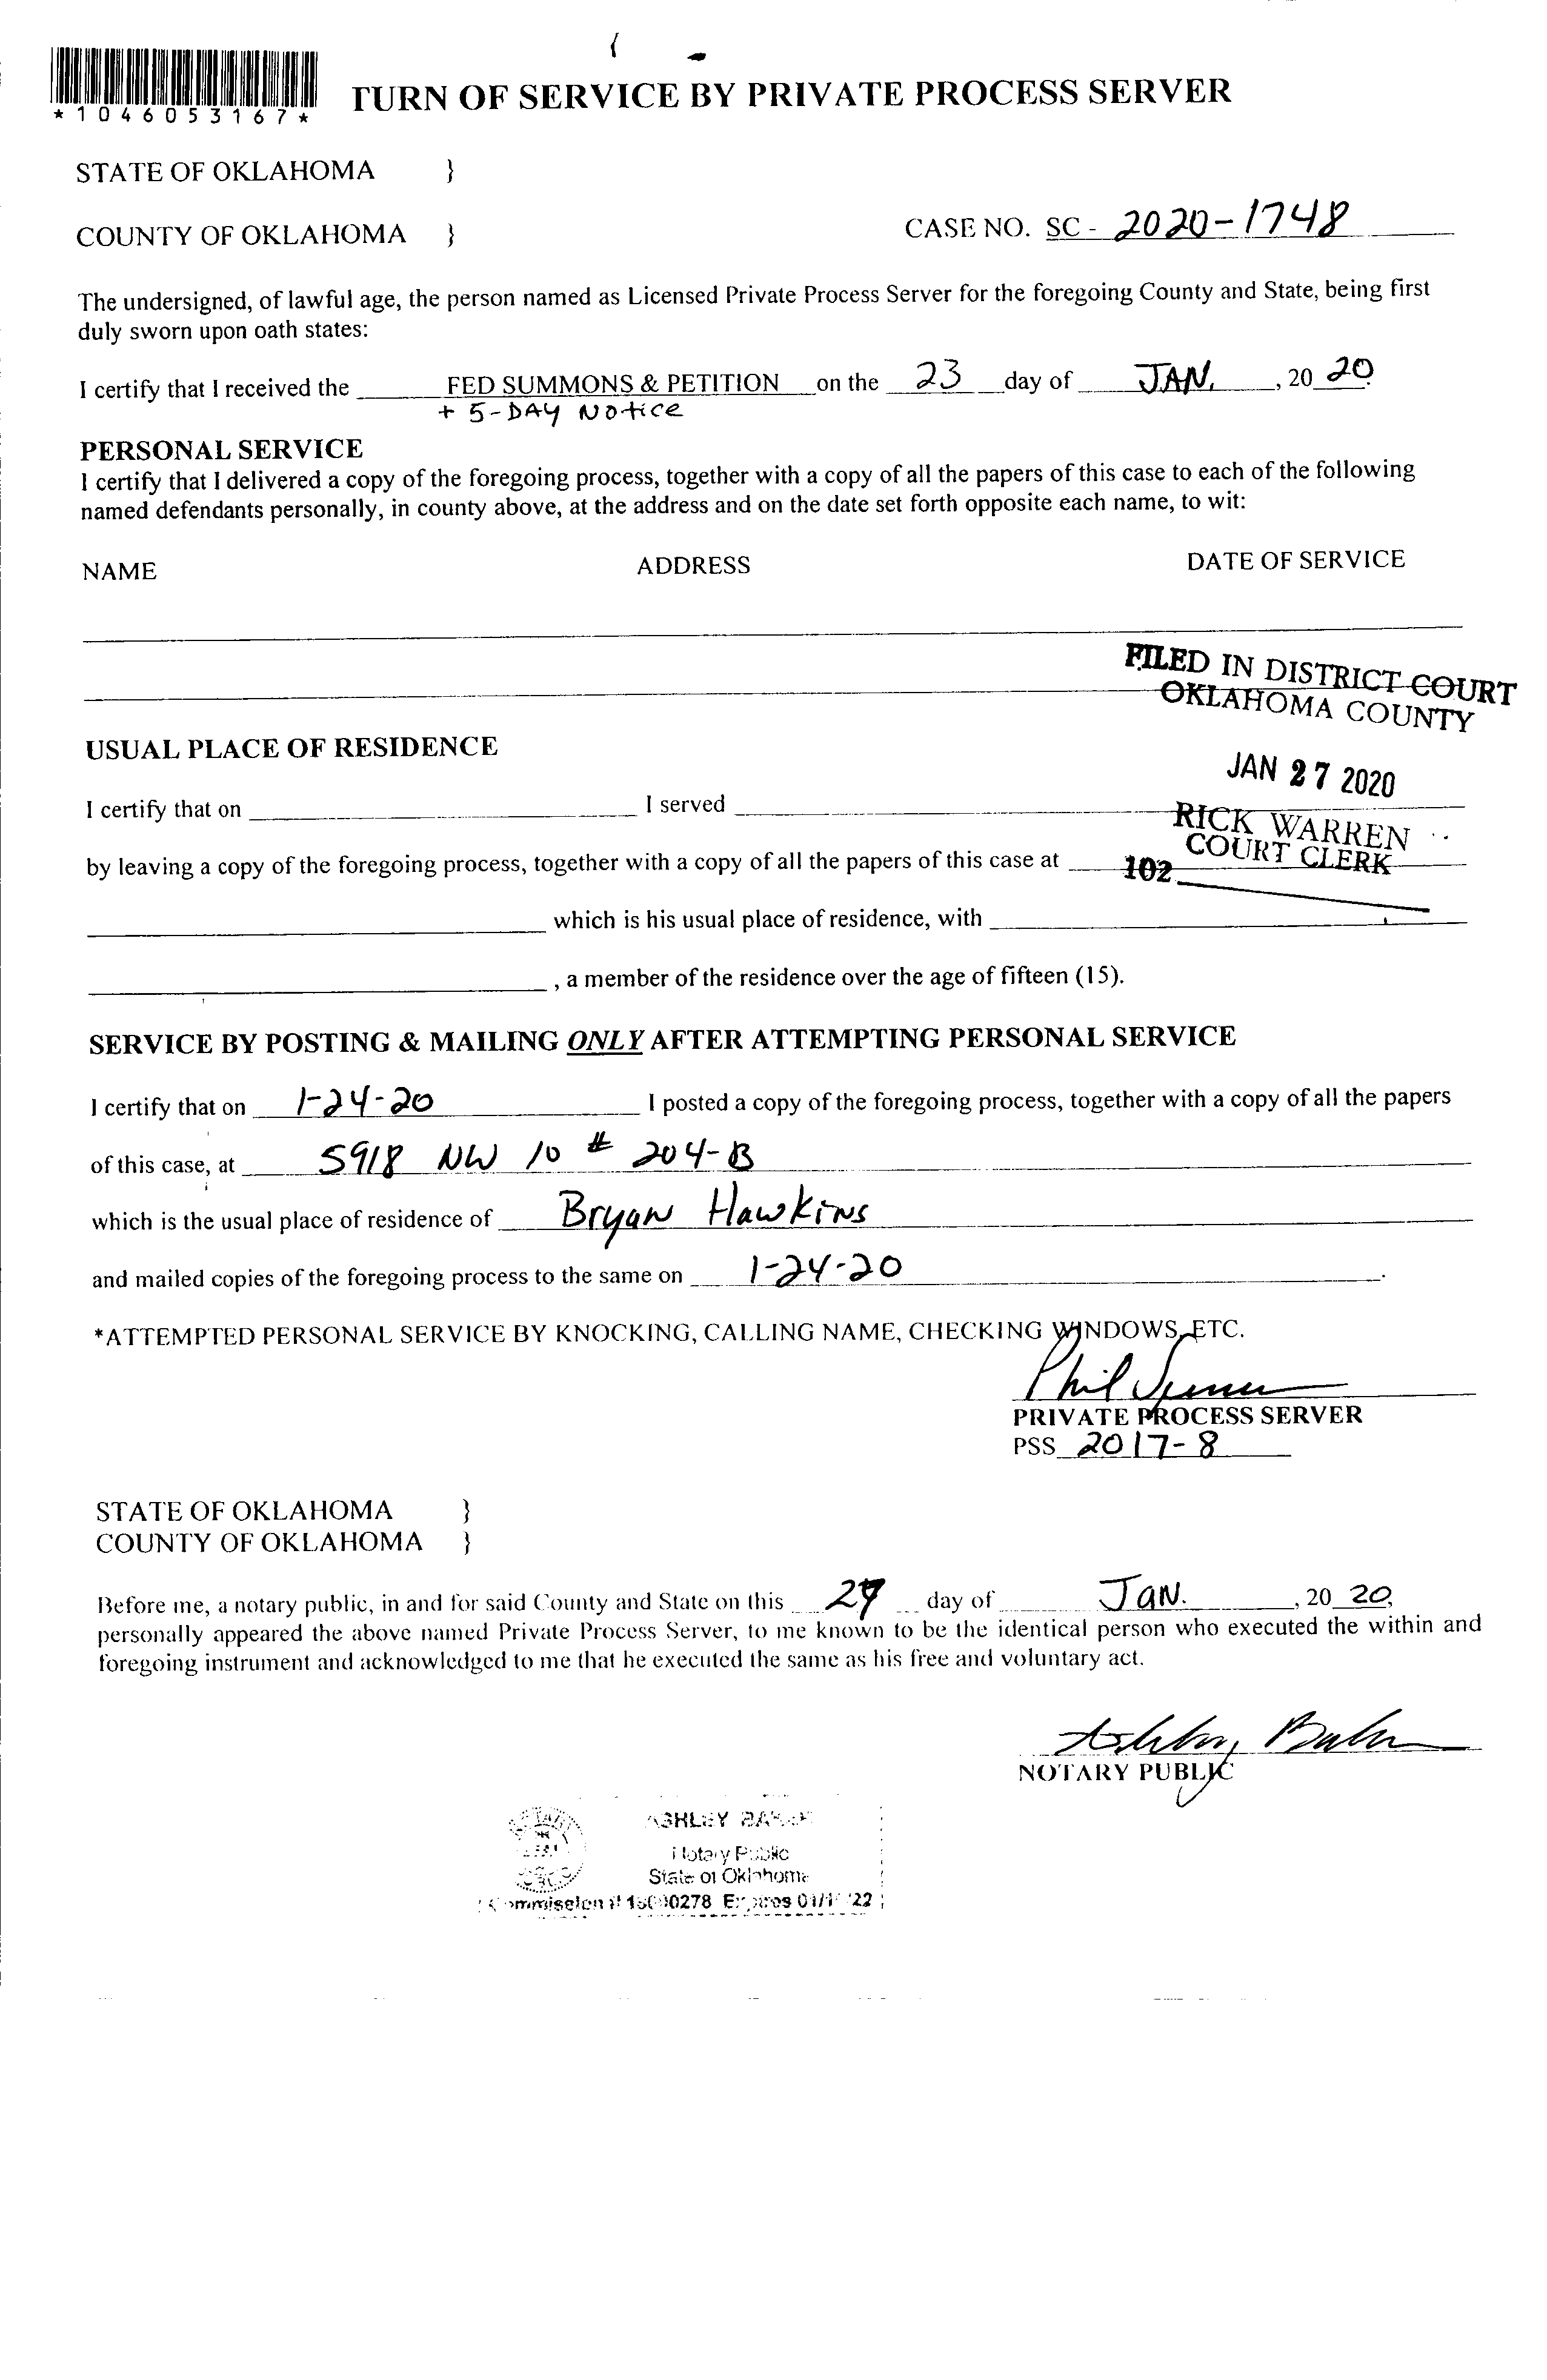 *1046053167*
TURN OF SERVICE BY PRIVATE PROCESS SERVER
STATE OF OKLAHOMA }
COUNTY OF OKLAHOMA } CASE NO. SC - 2020-1748
The undersigned, of lawful age, the person named as Licensed Private Process Server for the foregoing County and State, being first
duly sworn upon oath states:
I certify that I received the FED SUMMONS & PETITION on the 23 day of JAN. , 20 20.
+ 5-DAY Notice
PERSONAL SERVICE
I certify that I delivered a copy of the foregoing process, together with a copy of all the papers of this case to each of the following
named defendants personally, in county above, at the address and on the date set forth opposite each name, to wit:
NAME ADDRESS DATE OF SERVICE
FILED IN DISTRICT COURT
OKLAHOMA COUNTY
USUAL PLACE OF RESIDENCE
JAN 27 2020
I certify that on I served
RICK WARREN
COURT CLERK
by leaving a copy of the foregoing process, together with a copy of all the papers of this case at
102
which is his usual place of residence, with
, a member of the residence over the age of fifteen (15).
SERVICE BY POSTING & MAILING ONLY AFTER ATTEMPTING PERSONAL SERVICE
I certify that on 1-24-20 I posted a copy of the foregoing process, together with a copy of all the papers
of this case, at 5918 NW 10 # 204-B
which is the usual place of residence of Bryan Hawkins
and mailed copies of the foregoing process to the same on 1-24-20 .
*ATTEMPTED PERSONAL SERVICE BY KNOCKING, CALLING NAME, CHECKING WINDOWS, ETC.
Phil
PRIVATE PROCESS SERVER
PSS 2017-8
STATE OF OKLAHOMA }
COUNTY OF OKLAHOMA }
Before me, a notary public, in and for said County and State on this day of Jan. , 20 20,
personally appeared the above named Private Process Server, to me known to be the identical person who executed the within and
foregoing instrument and acknowledged to me that he executed the same as his free and voluntary act.
NOTARY PUBLIC
ASHLEY
Notary Public
State of Oklahoma
Commission # Expires